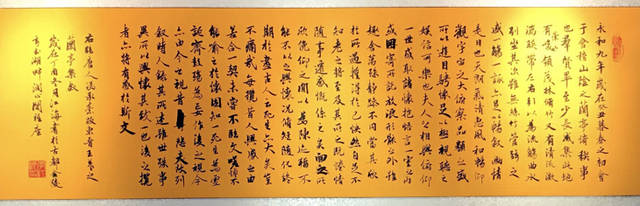 永和九年歲在癸丑暮春之初會
于會稽山陰之蘭亭脩稧事
也群賢畢至少長咸集此地
有崇山峻領茂林脩竹又有清流激
湍暎帶左右引以為流觴曲水
列坐其次雖無絲竹管弦之
盛一觴一詠亦足以暢敘幽情
是日也天朗氣清惠風和暢仰
觀宇宙之大俯察品類之盛
所以遊目騁懷足以極視聽之
娛信可樂也夫人之相與俯仰
一世或取諸懷抱悟言一室之內
或因寄所託放浪形骸之外雖
趣舍萬殊靜躁不同當其欣
於所遇暫得於己怏然自足不
知老之將至及其所之既惓情
隨事遷感慨係之矣向之所
欣俛仰之間以為陳迹猶不
能不以之興懷況脩短隨化終
期於盡古人云死生亦大矣豈
不痛哉每攬昔人興感之由
若合一契未嘗不臨文嗟悼不
能喻之於懷固知一死生為虛
誕齊彭殤為妄作後之視今
亦由今之視昔悲夫故列
敘時人錄其所述雖世殊事
異所以興懷其致一也後之攬
者亦將有感於斯文
右臨唐人馮承素東晉王羲之
蘭亭集敘
歲在丁酉六月江海